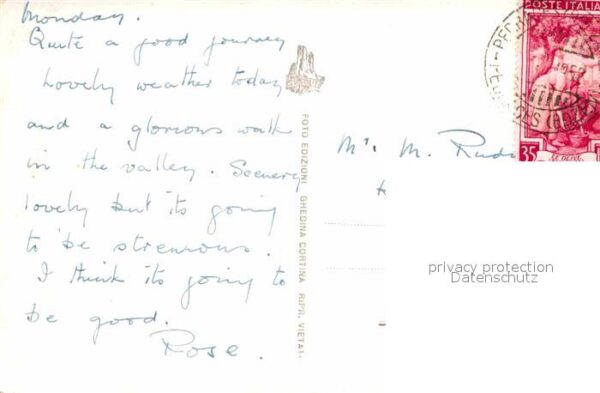 Monday.
Quite a good journey
Lovely weather today
and a glorious walk
in the valley. Scenery
lovely but its going
to be strenuous.
I think its going to
be good.
Rose.
FOTO EDIZIONI GHEDINA CORTINA RIPR. VIETATA
POSTE ITALIANE
35
M M. Rudi
privacy protection
Datenschutz